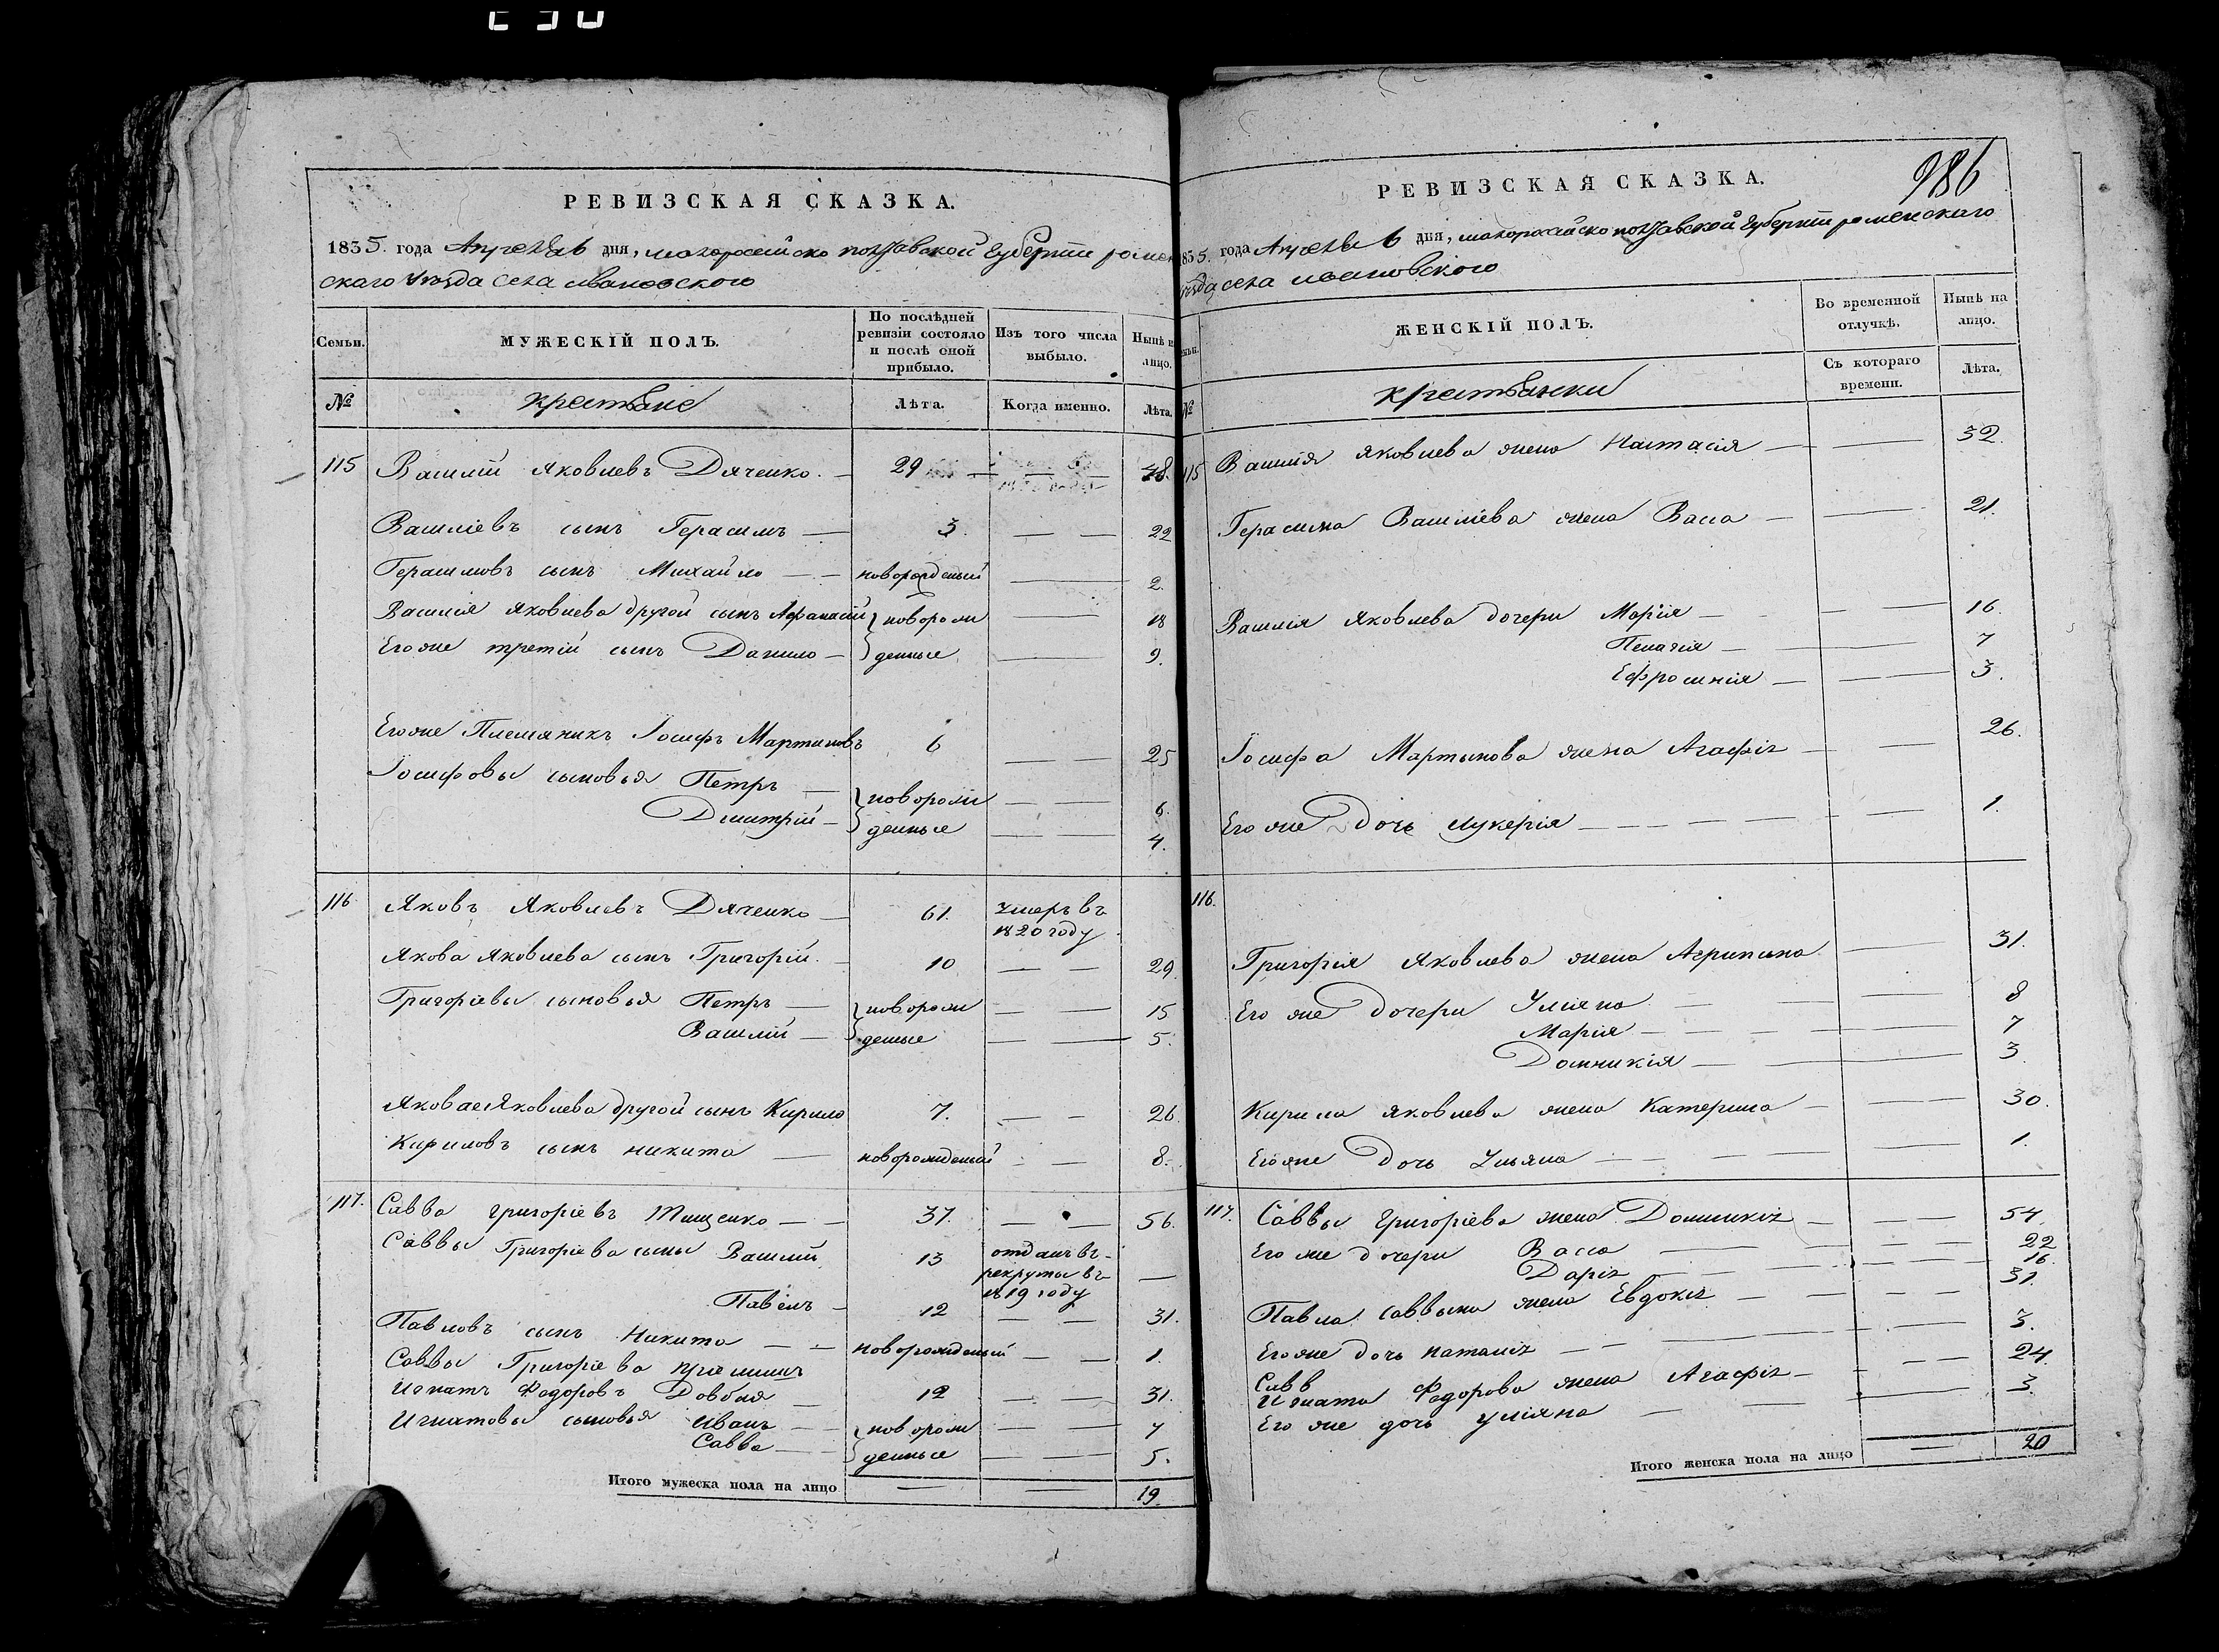 РЕВИЗСКАЯ СКАЗКА.
1835. года Апреля 6 дня, малоросейско полтавской Губернти ромен
скаго уѣзда села ивановского
Семьи.
МУЖЕСКІЙ ПОЛЪ.
По послѣдней ревизіи состояло и послѣ оной прибыло.
Изъ того числа выбыло.
Нынѣ н лицо.
№
крестьяне
Лѣта.
Когда именно.
Лѣта.
115 Василій Яковлевъ Дяченко. 29 48.
Василіевъ сынъ Герасимъ 3. 22
Герасимовъ сынъ Михайло новорожденый 2.
Василія Яковлева другой сынъ Афанасій новорож 18
Егоже третій сынъ Данило денные 9.
Егоже Племяникъ Іосифъ Мартиновъ 6 25
Іосифовы сыновья Петръ новорож 6.
Дмитрій денные 4.
116. Яковъ Яковлевъ Дяченко 61. умеръ въ
1820 году
Якова Яковлева сынъ Григорій. 10 29.
Григоріевы сыновья Петръ новорож 15
Василій деные 5.
Якова Яковлева другой сынъ Кирило 7. 26
Кириловъ сынъ никита новорожденый 8.
117. Савва григоріевъ Тищенко 37. 56.
Саввы Григоріева сыны Василій 13 отданъ въ
рекруты въ
1819 году
Павелъ 12 31.
Павловъ сынъ Никита новорожденый 1.
Саввы Григоріева пріемишъ
Игнатъ Федоровъ Довбня 12 31.
Игнатовы сыновья Иванъ новорож 7
Савва денные 5.
Итого мужеска пола на лицо 19.
986
РЕВИЗСКАЯ СКАЗКА.
835. года Апреля 6 дня, малоросейско полтавской Губернти роменскаго
уѣзда села ивановского
ЖЕНСКІЙ ПОЛЪ.
Во временной отлучкѣ.
Нынѣ на лицо.
№
крестьянки
Съ котораго времени.
Лѣта.
115 Василія Яковлева жена Настасія 32.
Герасима Василіева жена Васса 21.
Василія Яковлева дочери Марія 16.
Пелагія 7
Ефросинія 3.
Іосифа Мартынова жена Агафія 26.
Его же Дочь лукерія 1.
116.
Григорія Яковлева жена Агрипина 31.
Его же дочери Уліяна 8
Марія 7
Домникія 3
Кирила яковлева жена Катерина 30.
Егоже Дочь Ульяна 1.
117. Саввы Григоріева жена Домникія 54.
Его же дочери Васса 22
Дарія 16.
Павла саввина жена Евдокія 31.
Егоже дочь наталія 3.
Савв
Игната Федорова жена Агафія 24.
Его же дочь уліяна 3.
Итого женска пола на лицо 20